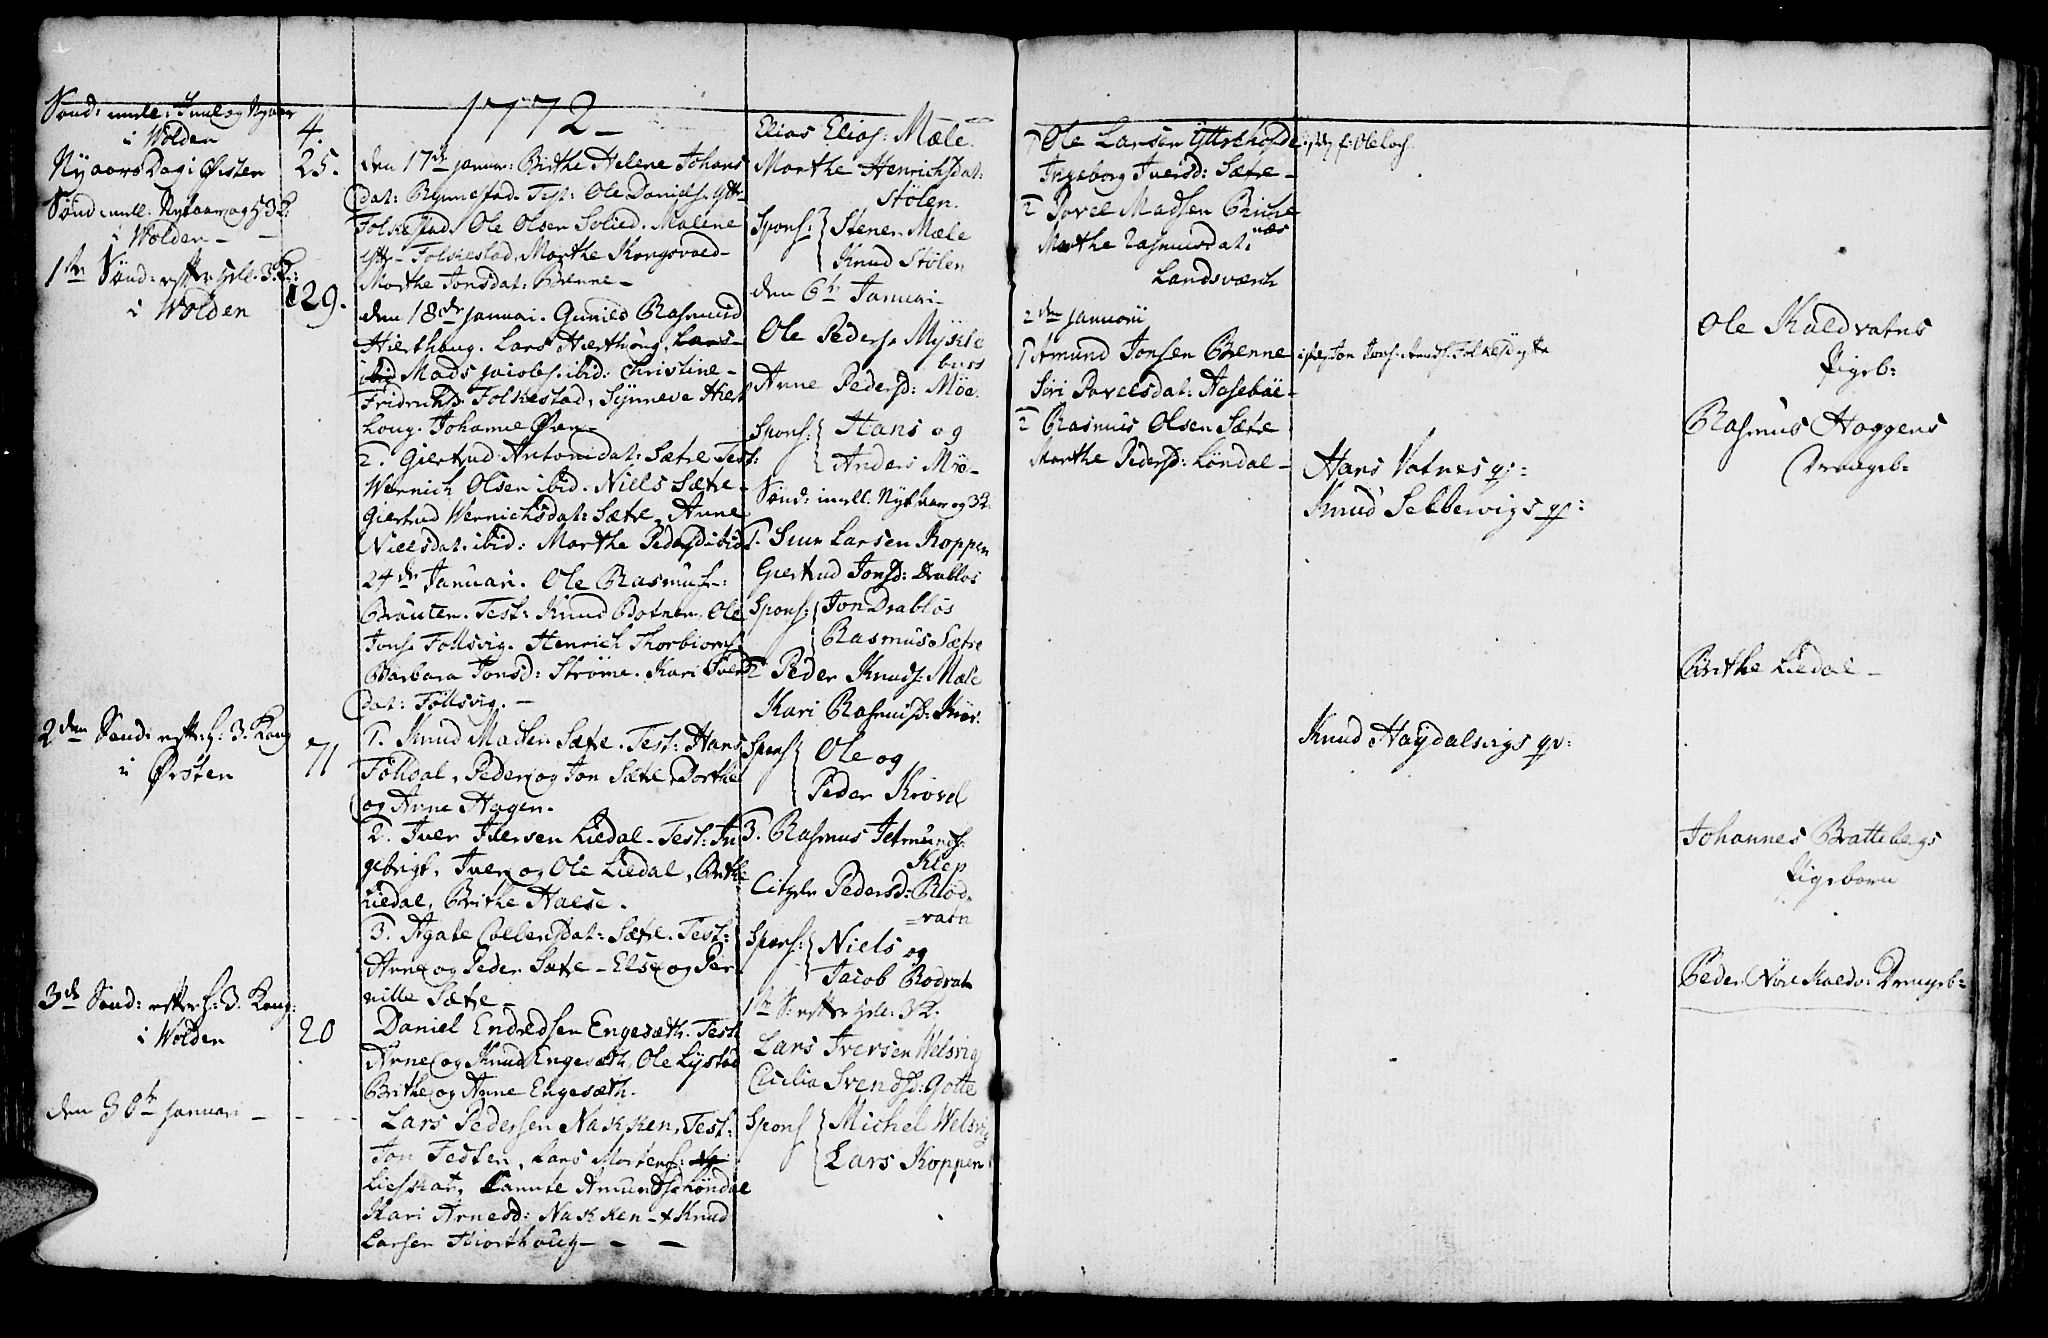 1772
Sønd: mell: Juul og Nyaar
i Wolden
4.
Nyaars Dag i Ørsten
25.
Sønd: mell: Nytaar og H 3 K:
i Wolden
1te Sønd: efter hell. 3 K:
i Wolden
129.
2den Sønd: efter H: 3. Kong
i Ørsten
71
3de Sønd: efter H: 3. Kong:
i Wolden
20
den 30te Januari
den 17de Januar: Birthe Helene Johans
dat: Rynnestad. Test: Ole Daniels. Ytt-
Folkestad, Ole Olsen Solied. Malene
ytt- Folkestad, Marthe Kongsvold-
Marthe Jonsdat: Brenne-
den 18de Januari. Gunild Rasmusd
Hierthaug. Lars Hierthoug, Lars-
ibid Mads Jacobs. ibid: Christine-
Fridrichsd: Folkestad, Synneve Hiert
houg. Johanne Øren-
2. Giertrud Antonidat: Sætre Test:
Wernich Olsen ibid. Niels Sætre-
Giertrud Wernichsdat: Sætre, Anne
Nielsdat. ibid: Marthe Pedersd ibid
24de Januari. Ole Rasmuss:
Brauten. Test: Knud Botnen, Ole
Jons. Follsvig. Henrich Thorbiorns.
Barbara Jonsd: Strøme. Kari Iver
dat: Follsvig.-
1. Knud Madsen Sætre. Test: Hans
Folldal, Peder og Jon Sætre, Dorthe
og Anne Hagen.
2. Iver Iversen Liedal- Test: In
gebrigt, Iver og Ole Liedal, Birthe
Liedal, Brithe Aalse.
3. Agate Collensdat: Sætre. Test:
Arne og Peder Sætre- Else og Per
nille Sætre-
Daniel Endredsen Engesæth. Test:
Arne og Knud Engesæth, Ole Lystad
Brithe og Anne Engesæth.
Lars Pedersen Nakken, Test:
Jon Fedsen, Lars Mortens:
Lieskat, Lamute Amundsd Høndal
Kari Arnesd: Nakken- + Knud
Larsen Hiorthoug-
Elias Elias: Mæle
Marthe Henrichsdat:
Stølen.
Spons: Stener Mæle
Knud Stølen
den 6te Januari-
Ole Peders. Mykle
bust
Anne Pedersd: Møe.
Spons: Hans og
Anders Møe-
Sønd: imell: Nythaar og 3 K.
1. Siun Larsen Koppen
Giertrud Jonsd: Drabløs
Spons: Jon Drabløs
Rasmus Sætre
2 Peder Knuds. Mæle
Kari Rasmusd: Krov.
Spons Ole og
Peder Krovel
3. Rasmus Jetmunds.
Klep
Citzele Pedersd: Rod-
=vatn
Spons: Niels og
Jacob Rodvatn
1te S: efter hell: 3 K.
Lars Iversen Welsvig
Cicilia Svendsd: Gotte
Spons Michel Welsvig
Lars Koppen
1 Ole Larsen Ytrehofde
Ingeborg Iversd: Sætre-
2 Povel Madsen Brune
næs
Marthe Rasmusdat:
Landsværch
2den Januarii
1 Amund Jonsen Brenne
Siri Povelsdat: Aasebøe-
2 Rasmus Olsen Sætre
Marthe Pedersd: Løndal-
Hans Vatnes qv:
Knud Selbervigs qv:
Knud Haydalsvigs qv:
Ole Kaldvatns
Pigeb:
Rasmus Haggens
Drengeb:
Brithe Liedal-
Johannes Brattebergs
Pigebarn
Peder Nøre Kaldv: Drengeb: